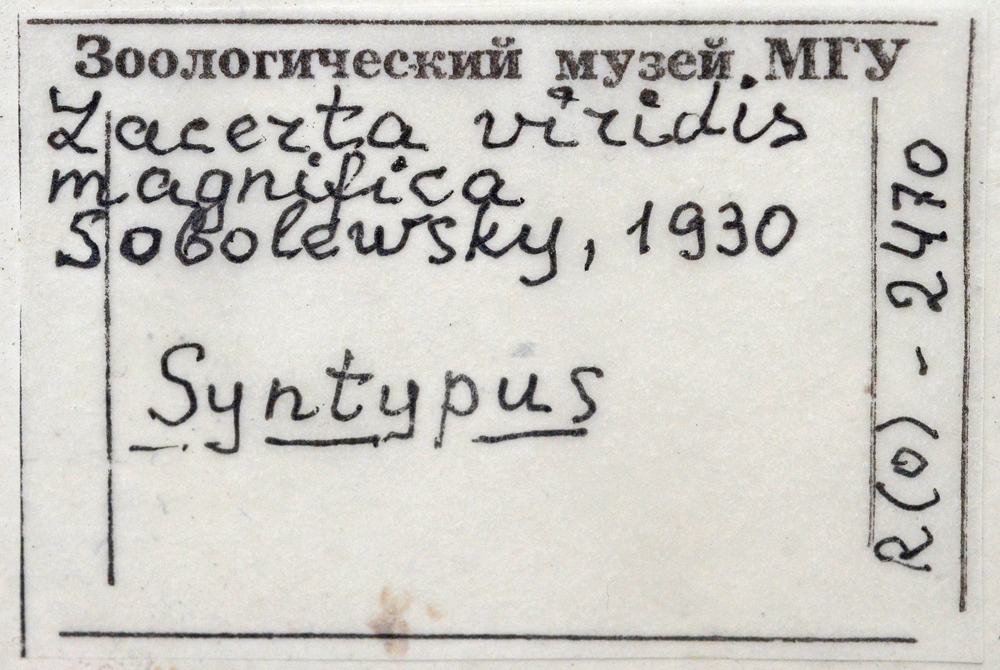 Зоологический музей МГУ
Lacerta viridis
magnifica
Sobolewsky, 1930
Syntypus
R(o) - 2470